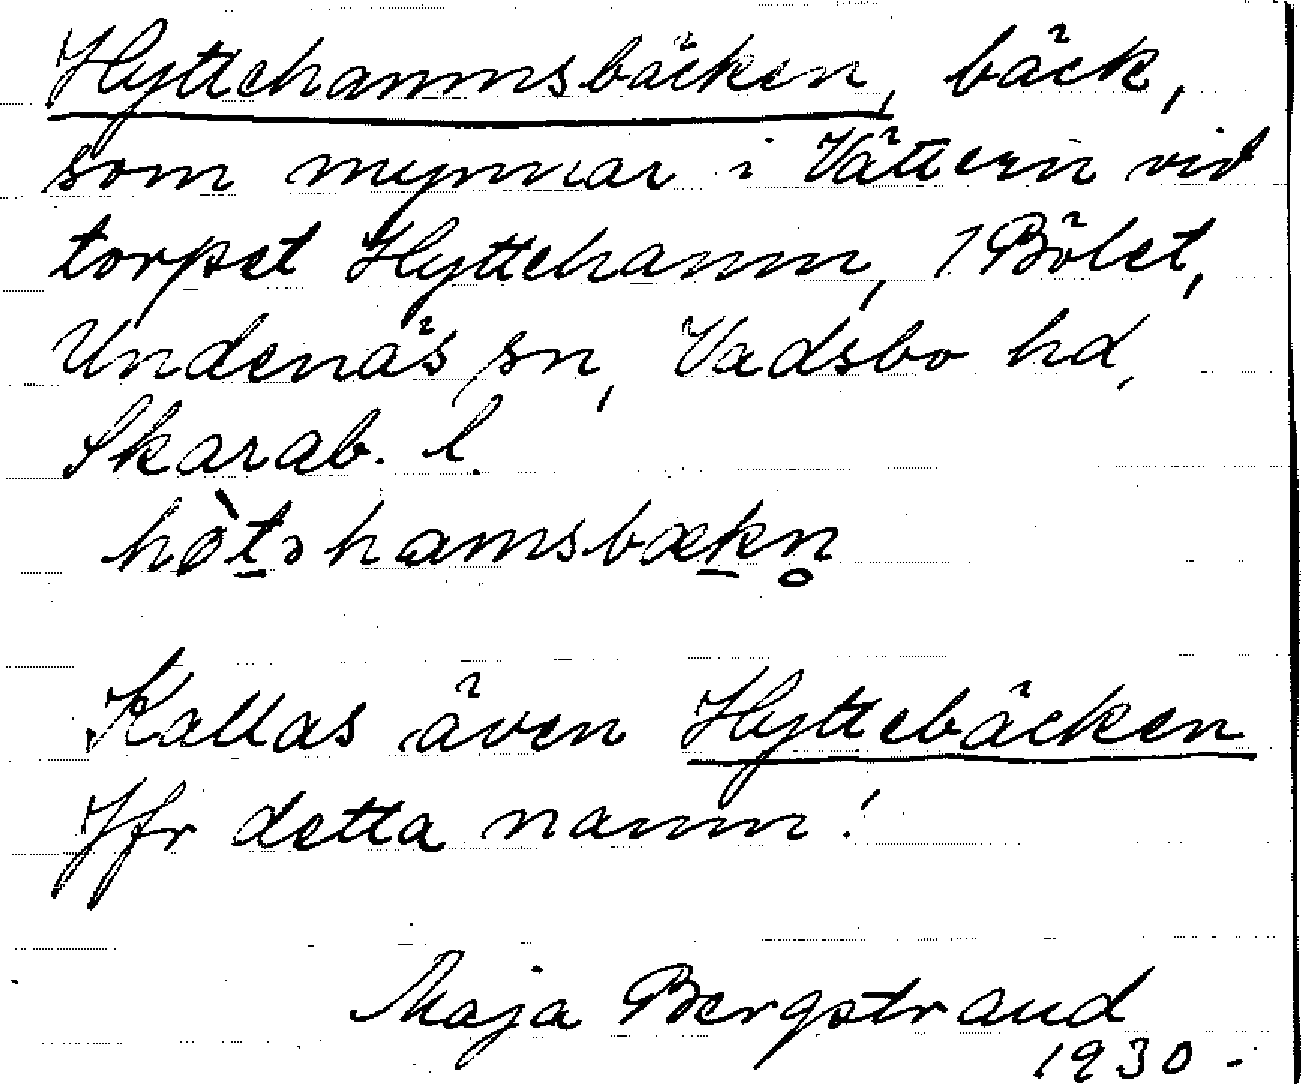 Hyttehamnsbäcken, bäck,
som mynnar i Vättern vid
torpet Hyttehamn, 1 Bölet,
Undenäs sn, Vadsbo hd,
Skarab. l.
hø̀t̠əhamsbæk̠n̥
Kallas även Hyttebäcken
Jfr detta namn!
Maja Bergstrand
1930.